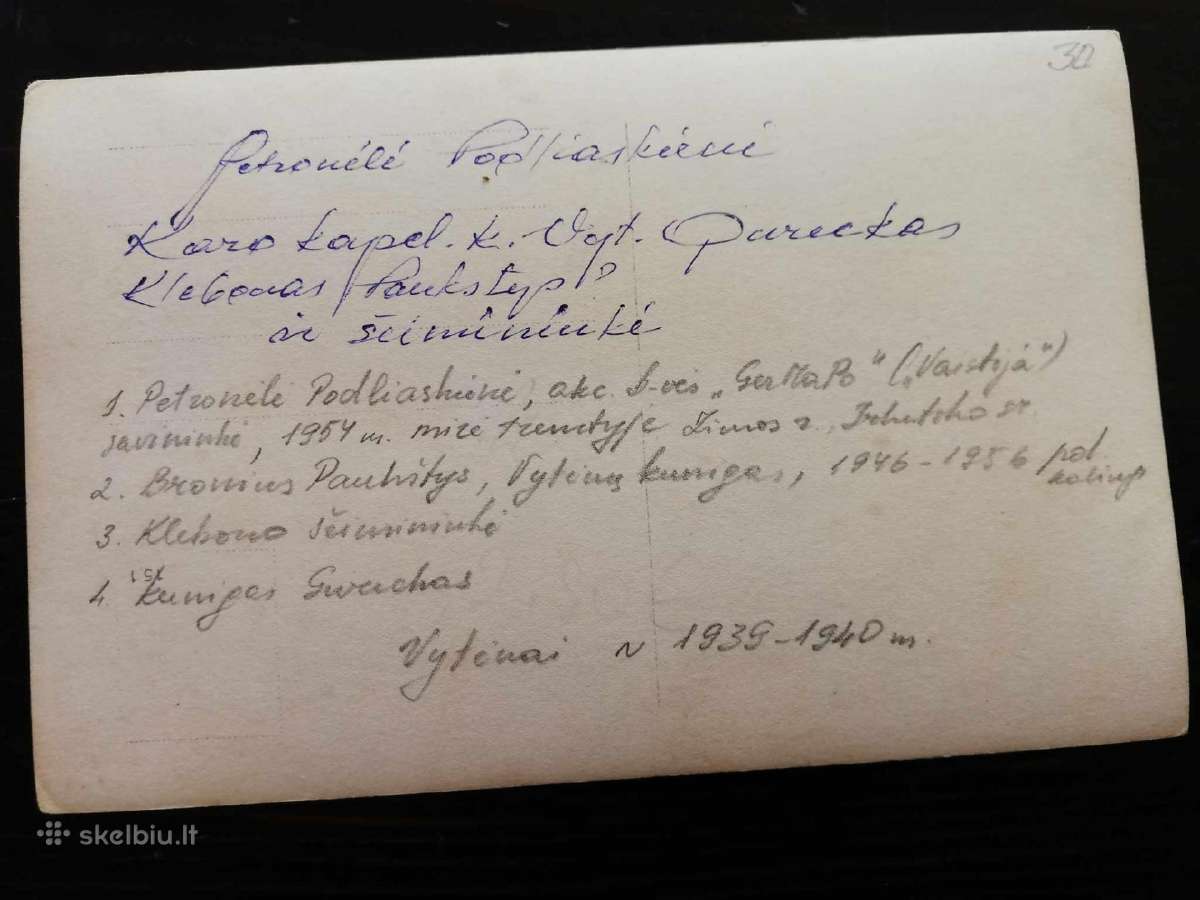 30
Petronėlė Podliaskienė
Karo kapel. k. Vyt. Gureckas
Klebonas Paukštys
ir šeimininkė
1. Petronėlė Podliaskienė, akc. b-vės „GerMaPo" („Vaistija")
savininkė, 1954 m. mirė tremtyje Zimos r., Irkutsko sr.
2. Bronius Paukštys, Vytėnų kunigas, 1946-1956 pol. kalinys
3. Klebono šeimininkė
4. kunigas
Vytėnai ~ 1939-1940 m.
skelbiu.lt